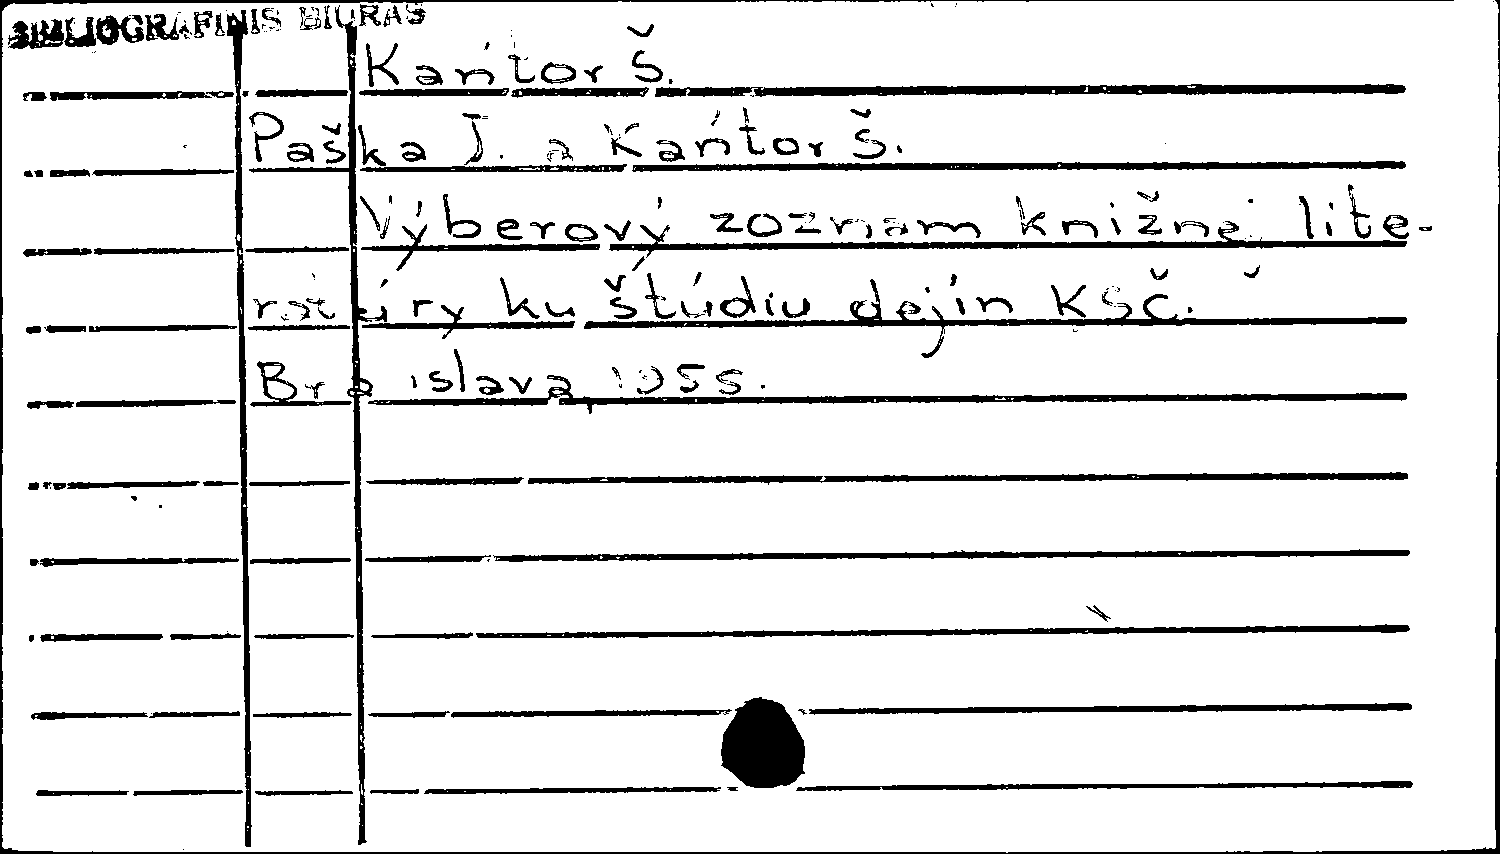 BIBLIOGRAFINIS BIURAS
Kántor Š.
Paška J. a Kántor Š.
Výberový zoznam knižnej lite-
ratúry ku štúdiu dejín KSČ.
Bratislava, 1955.